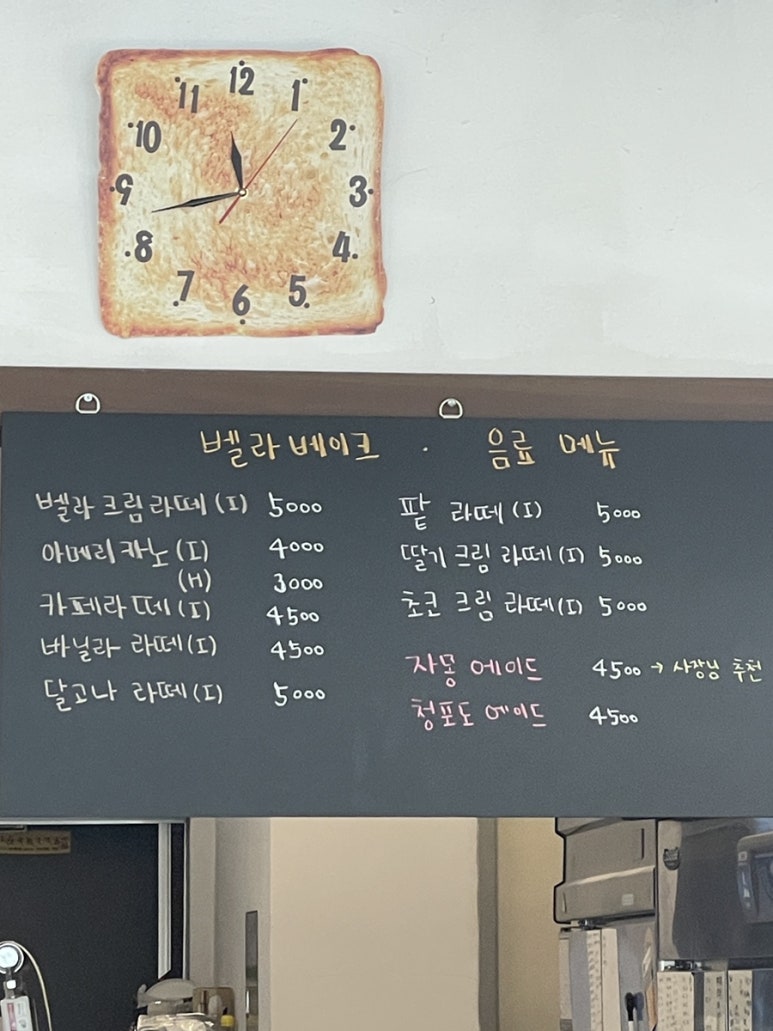 12
11
1
10
2
9
3
8
4
7
5
6
벨라베이크 · 음료 메뉴
벨라크림라떼(I) 5000
아메리카노(I) 4000
(H) 3000
카페라떼(I) 4500
바닐라 라떼(I) 4500
달고나 라떼(I) 5000
팥 라떼(I) 5000
딸기크림 라떼(I) 5000
초코 크림 라떼(I) 5000
자몽 에이드 4500 → 사장님 추천
청포도 에이드 4500